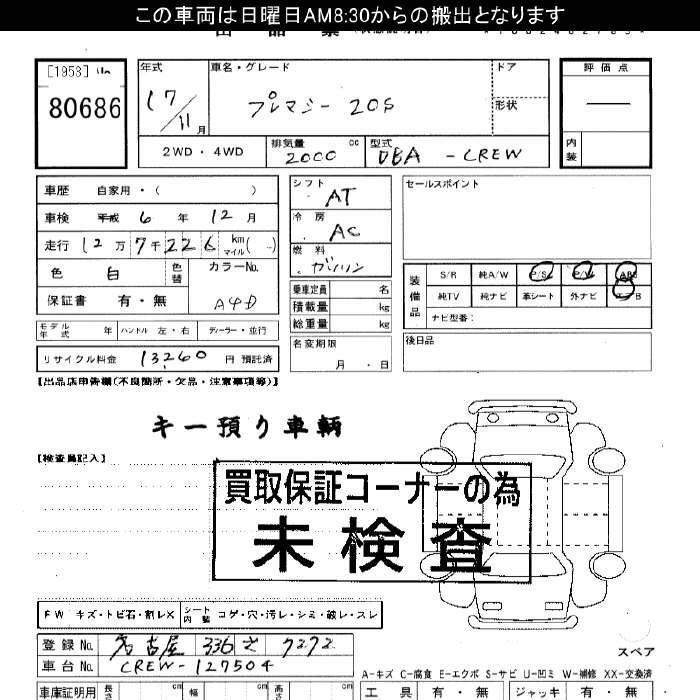 この車両は日曜日AM8:30からの搬出となります
[1953]
80686
年式
17/11月
車名・グレード
プレマシー 20S
ドア
形状
2WD・4WD
排気量 cc
2000
型式
DBA -CREW
評価点
内装
車歴 自家用・( )
車検 平成 6 年 12 月
走行 12万 7千226 km マイル( )
色 白
色替
カラーNo.
A4D
保証書 有・無
シフト AT
冷房 AC
燃料 ガソリン
乗車定員 名
積載量 kg
総重量 kg
セールスポイント
装備品
S/R 純A/W P/S P/W ABS
純TV 純ナビ 革シート 外ナビ
ナビ型番:
モデル年式 年 ハンドル 左・右 ディーラー・並行
リサイクル料金 13,260 円 預託済
名変期限
月・日
後日品
【出品店申告欄(不良箇所・欠品・注意事項等)】
キー預り車輌
【検査員記入】
買取保証コーナーの為
未検査
FW キズ・トビ石・割レX
シート内装 コゲ・穴・汚レ・シミ・破レ・スレ
登録No. 名古屋 336 そ 7272
車台No. CREW-127504
スペア
A-キズ C-腐食 E-エクボ S-サビ U-凹ミ W-補修 XX-交換済
車庫証明用 長さ cm 幅 cm 高さ cm
工具 有・無 ジャッキ 有・無